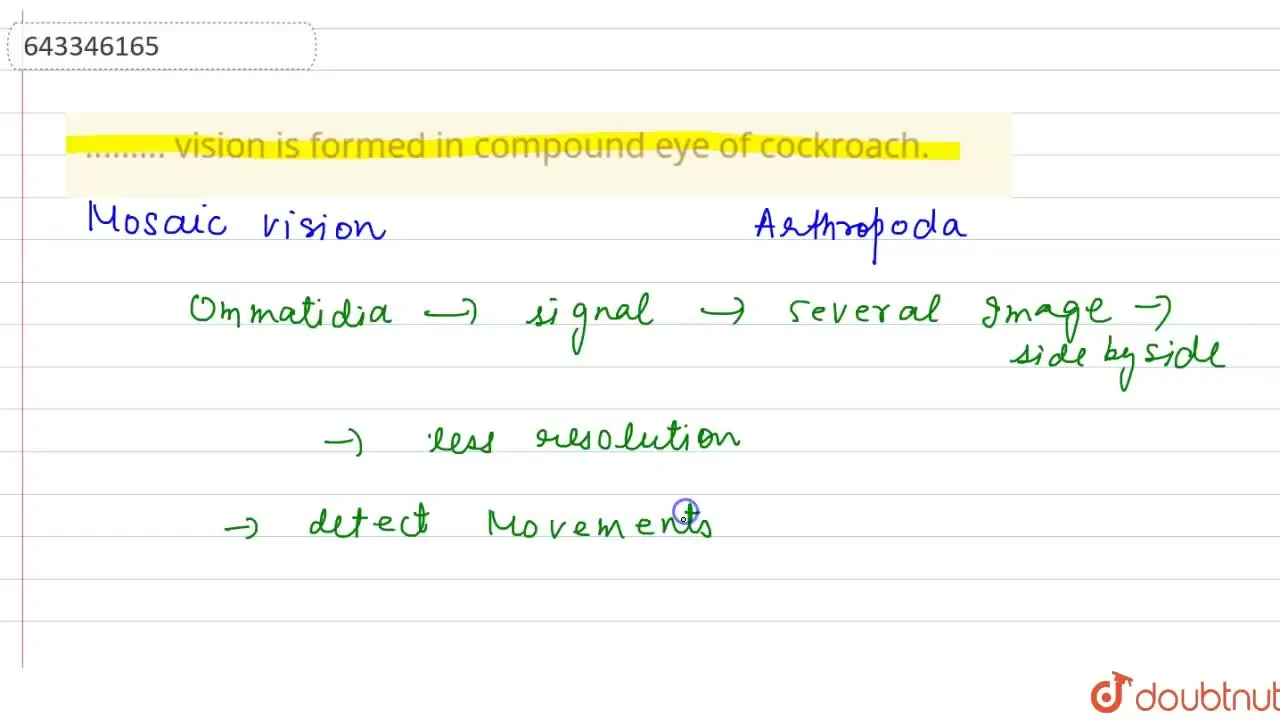 643346165
......... vision is formed in compound eye of cockroach.
Mosaic vision Arthropoda
Ommatidia → signal → several Image →
side by side
→ less resolution
→ detect Movements
doubtnut